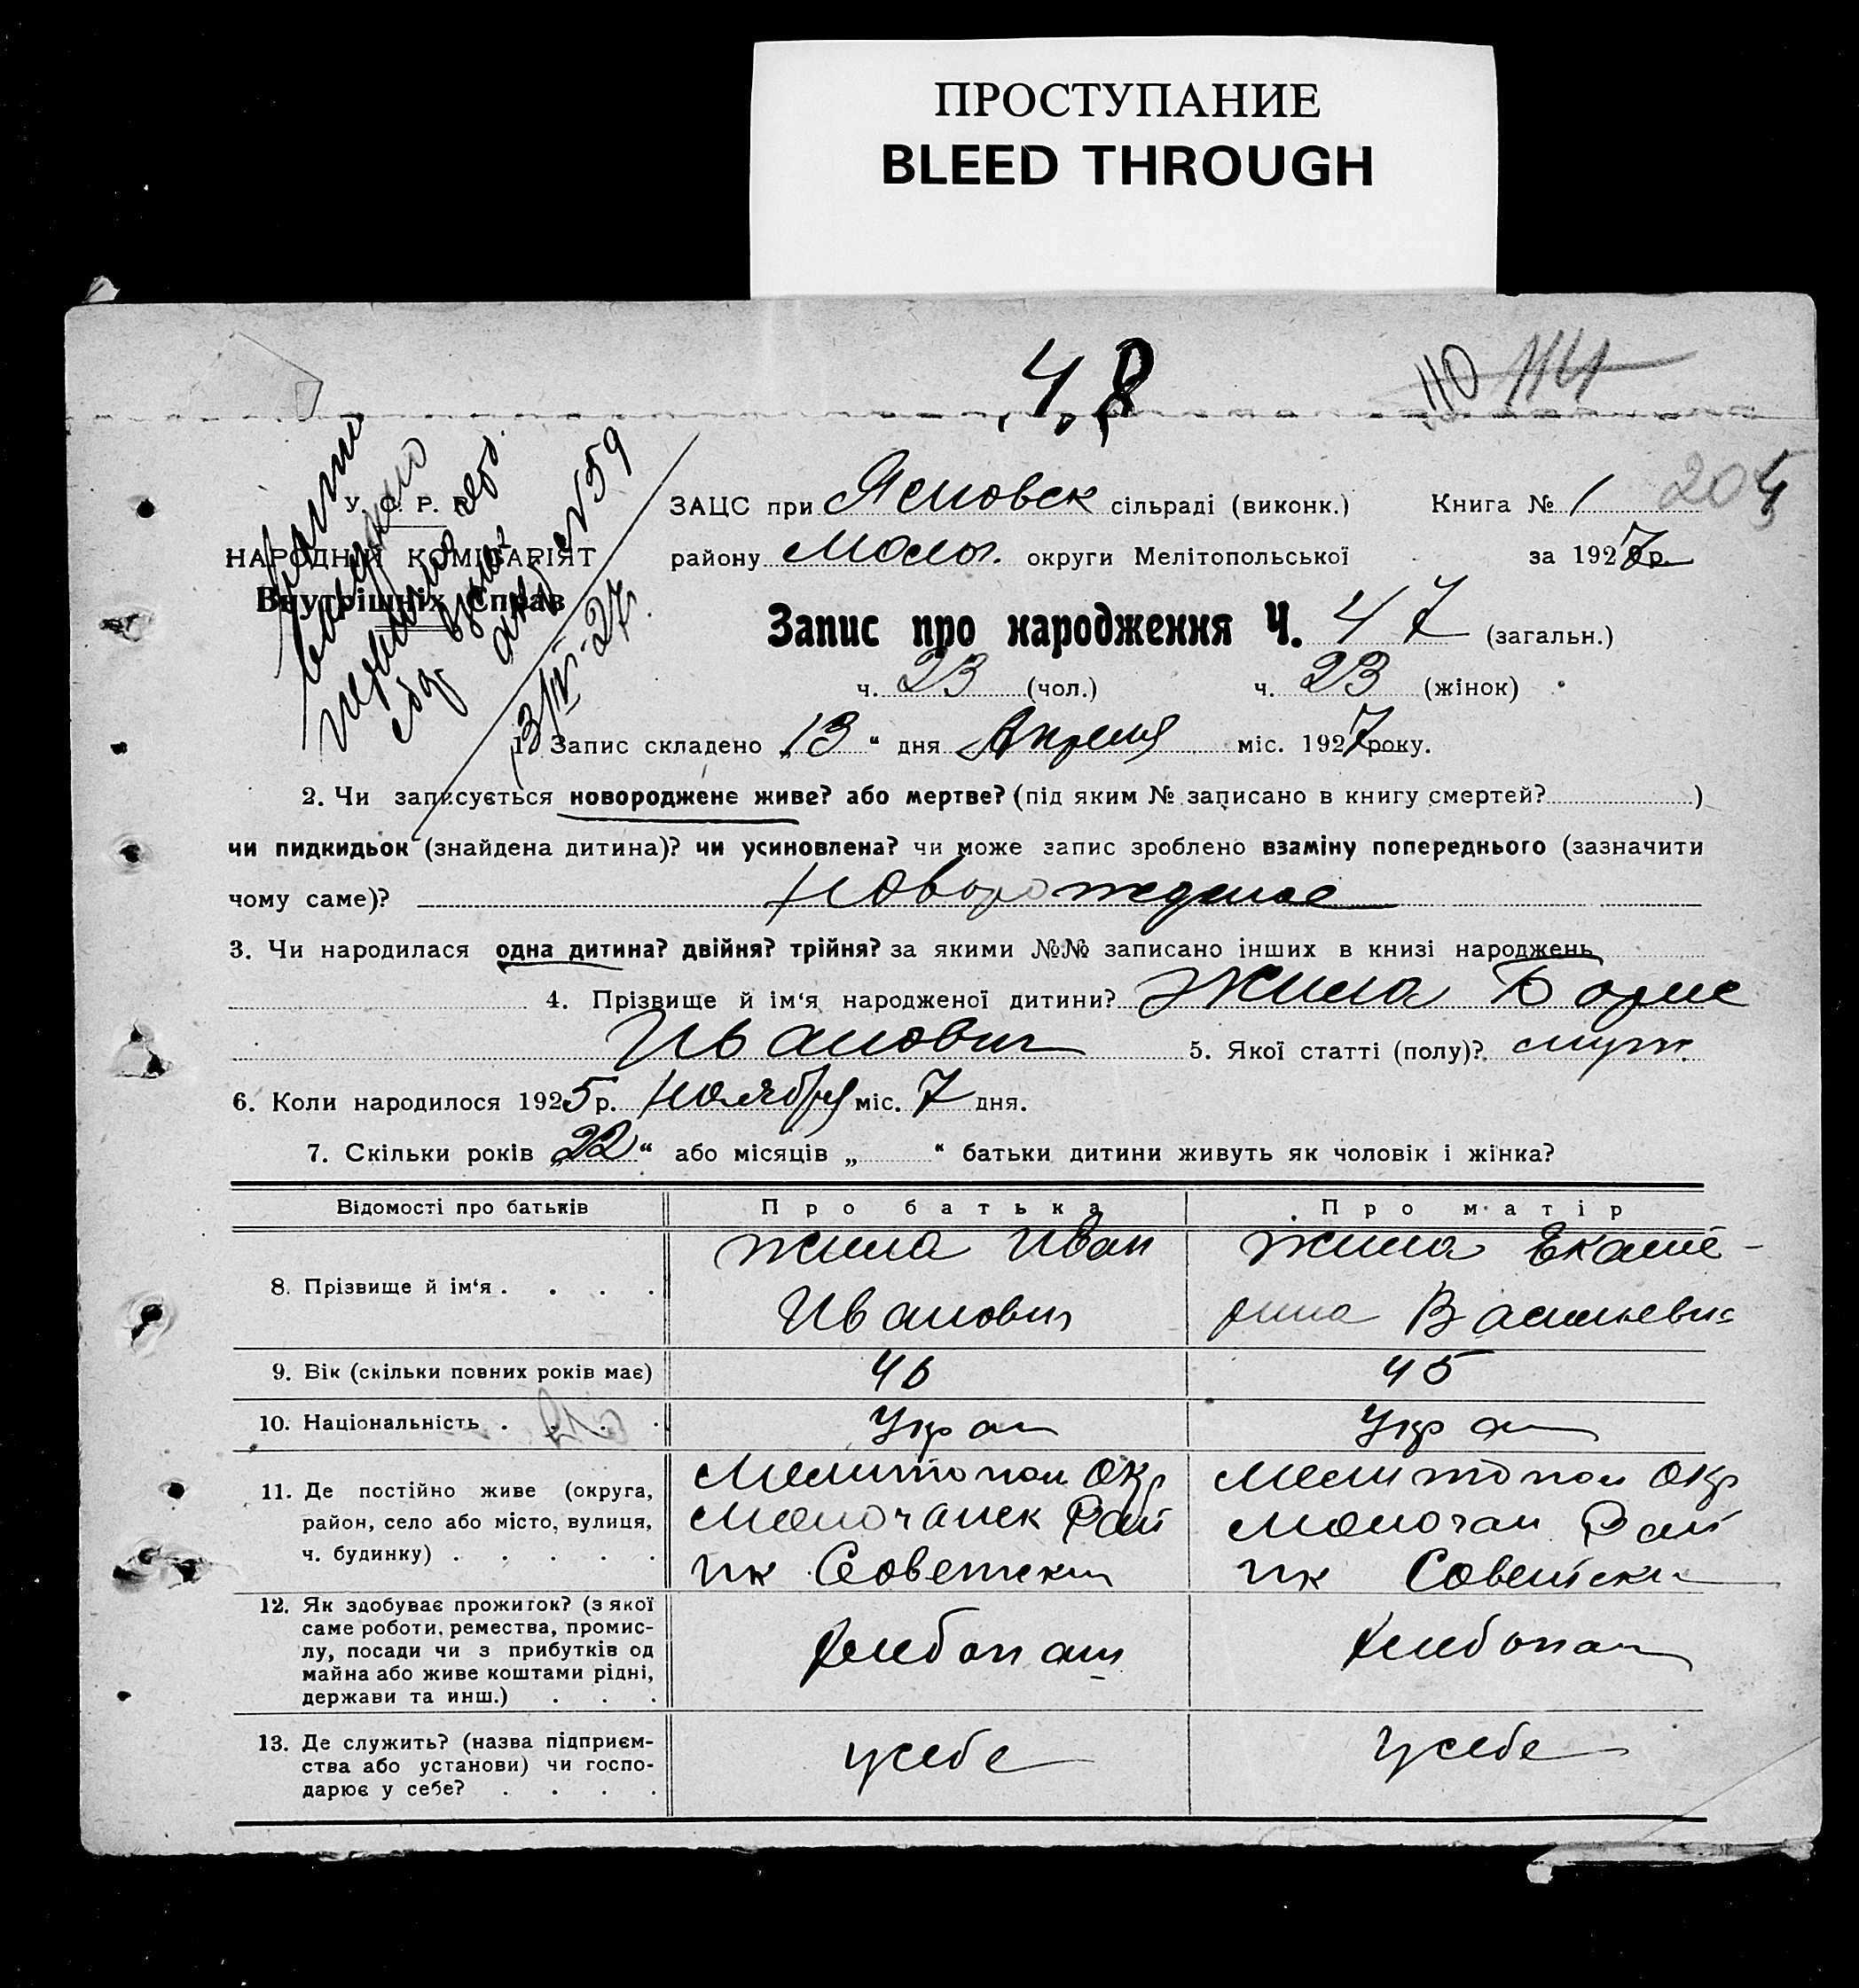 ПРОСТУПАНИЕ
BLEED THROUGH
48
110 114
205
У. С. Р. Р.
НАРОДНІЙ КОМІСАРІЯТ
Внутрішніх Справ
акт N 59
13/IV-27.
ЗАЦС при Ясновск сільраді (виконк.) Книга № 1
району Молоч. округи Мелітопольської за 1927 р.
Запис про народження Ч. 47 (загальн.)
ч. 23 (чол.) ч. 23 (жінок)
1. Запис складено „13“ дня Апреля міс. 1927 року.
2. Чи записується новороджене живе? або мертве? (під яким № записано в книгу смертей? )
чи пидкидьок (знайдена дитина)? чи усиновлена? чи може запис зроблено взаміну попереднього (зазначити
чому саме)? Новорожденое
3. Чи народилася одна дитина? двійня? трійня? за якими №№ записано інших в книзі народжень
4. Прізвище й ім‘я народженої дитини? Жила Борис
Иванович 5. Якої статті (полу)? муж.
6. Коли народилося 1925 р. Ноября міс. 7 дня.
7. Скільки років „22“ або місяців „ “ батьки дитини живуть як чоловік і жінка?
Відомості про батьків Про батька Про матір
8. Прізвище й ім‘я . . . . Жила Иван Жила Екате-
Иванович рина Васильевна
9. Вік (скільки повних років має) 46 45
10. Національність . . . . Укра Укра
11. Де постійно живе (округа, Мелитопол Окр Мелитопол Окр
район, село або місто, вулиця, Молочанск Рай Молочан Рай
ч. будинку) . . . . . пк Советский пк Советски
12. Як здобуває прожиток? (з якої
саме роботи, ремества, промис-
лу, посади чи з прибутків од хлебопаш хлебопаш
майна або живе коштами рідні,
держави та инш.) . . .
13. Де служить? (назва підприєм-
ства або установи) чи госпо- у себе у себе
дарює у себе? . . . .